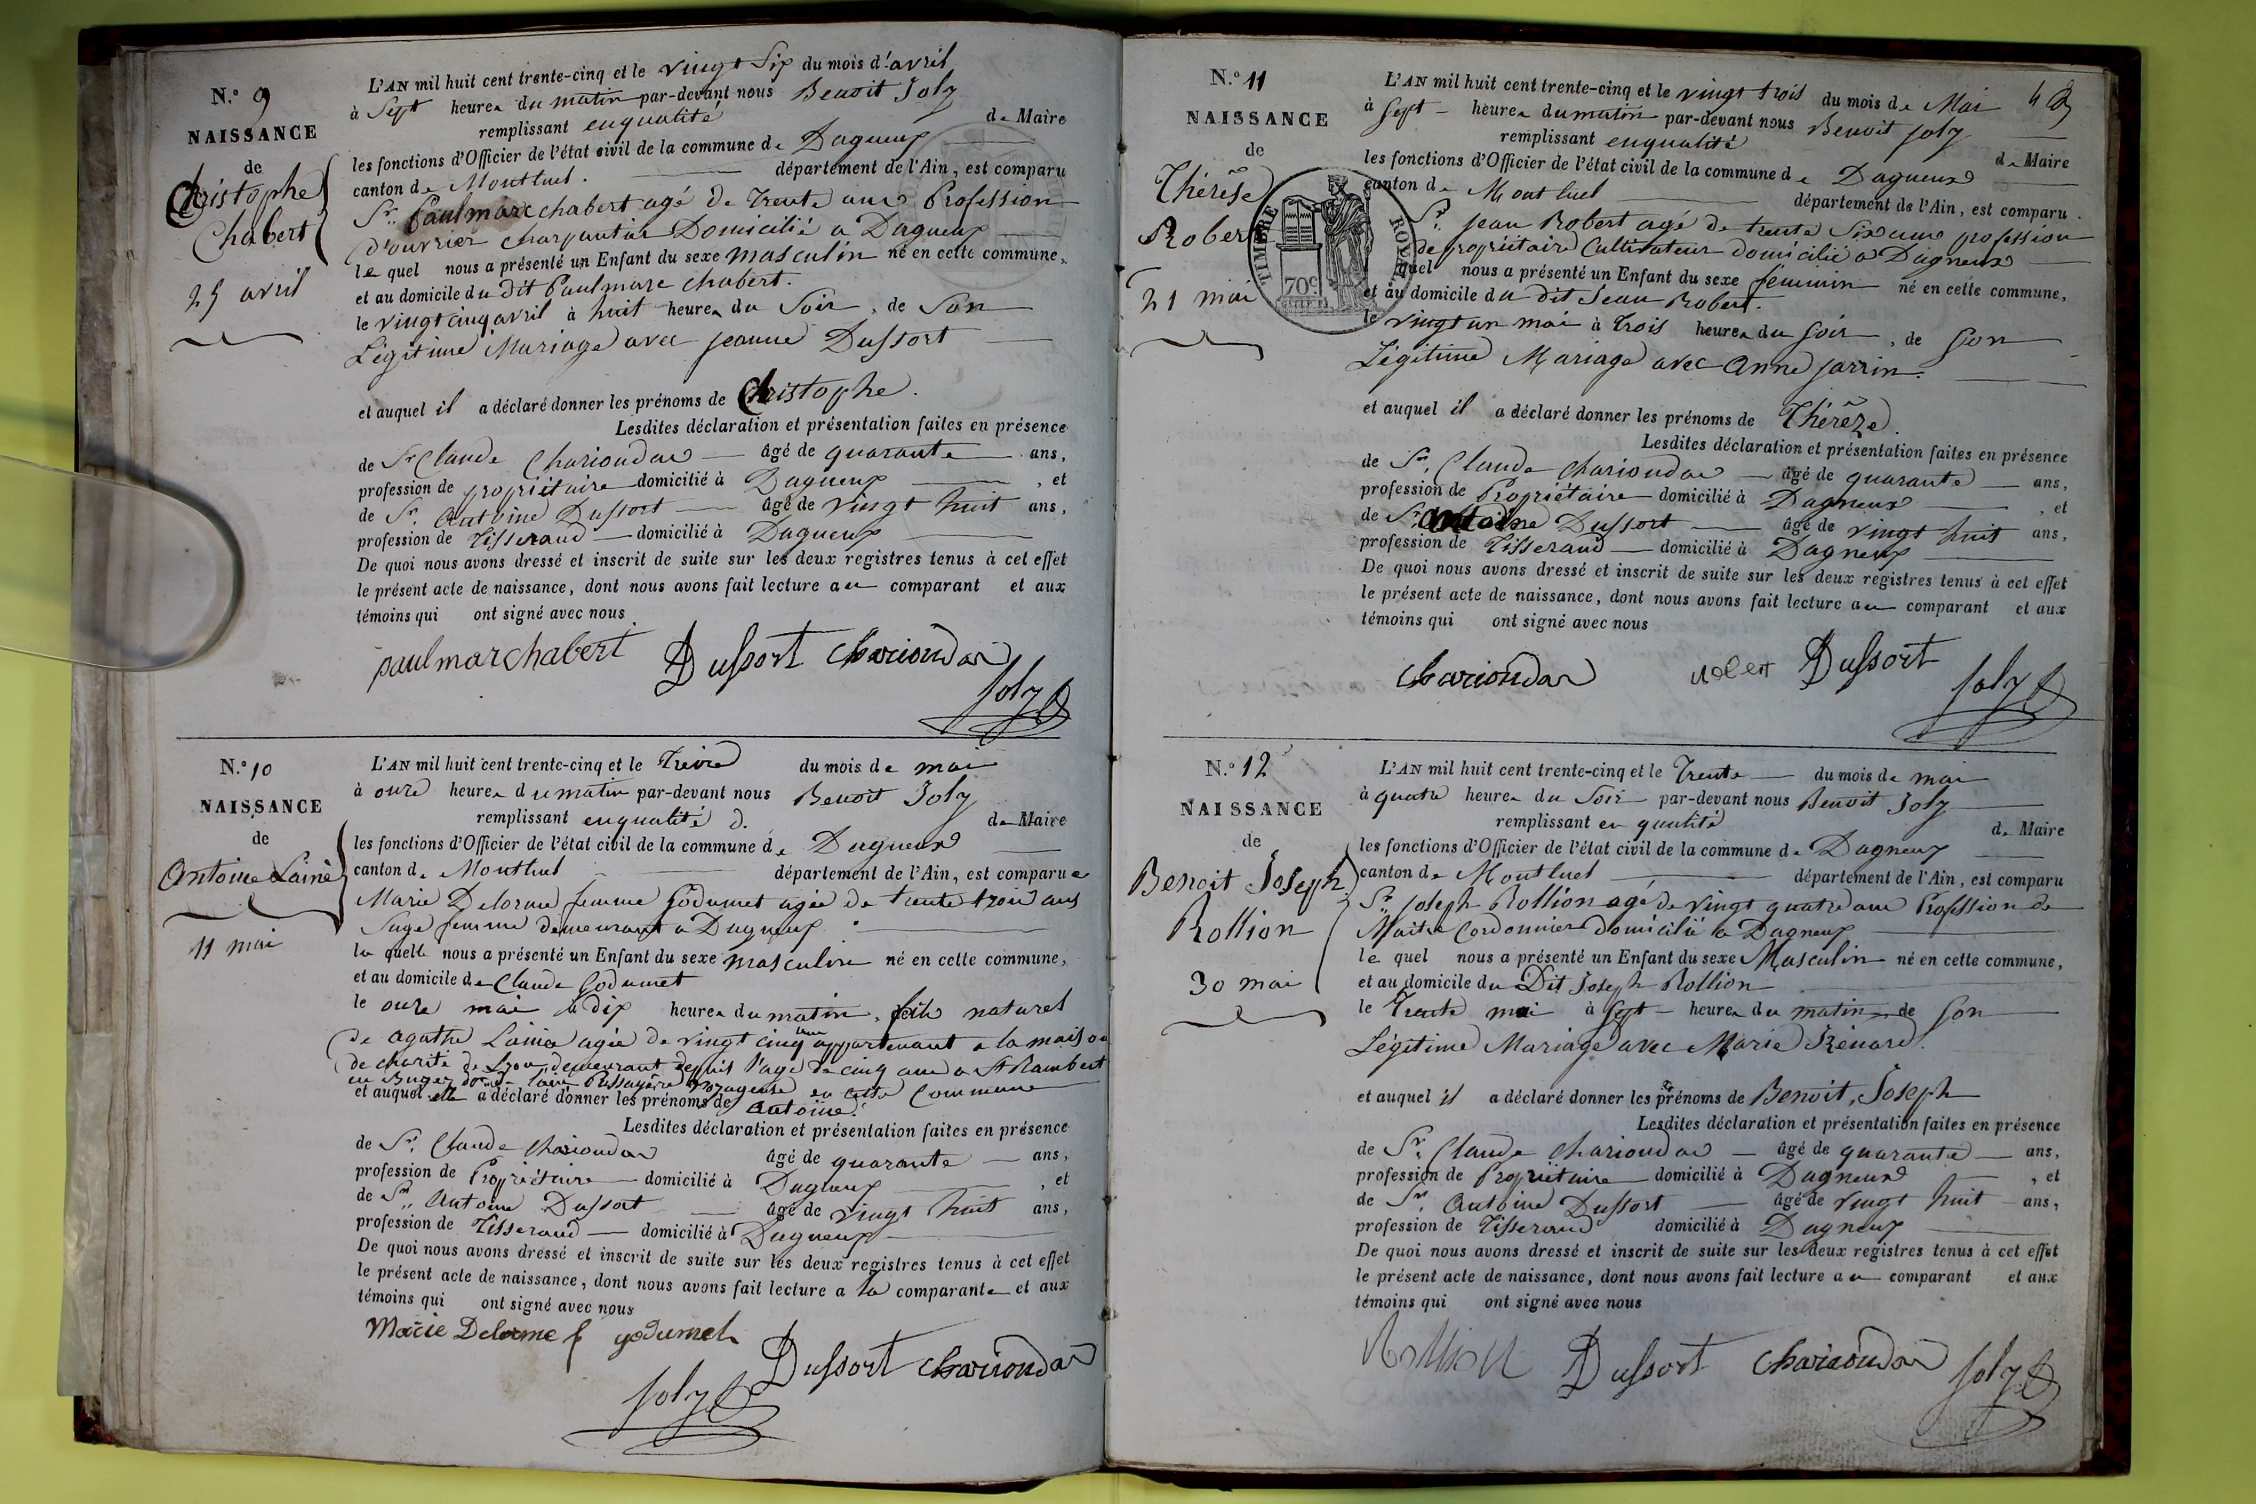 N.º 9
NAISSANCE
de
Christophe
Chabert
25 avril
L'AN mil huit cent trente-cinq et le vingt Six du mois d'avril
à Sept heures du matin par-devant nous Benoit Joly
remplissant en qualité de Maire
les fonctions d'Officier de l'état civil de la commune de Dagneux
canton de Montluel département de l'Ain, est comparu
Sr. Paulmarc chabert agé de trente ans Profession
d'ouvrier charpantier Domicilié a Dagneux
le quel nous a présenté un Enfant du sexe masculin né en cette commune,
et au domicile du dit Paulmarc chabert.
le vingt cinq avril à huit heures du Soir, de Son
Légitime Mariage avec jeanne Dussort
et auquel il a déclaré donner les prénoms de Christophe.
Lesdites déclaration et présentation faites en présence
de Sr Claude Chariondas âgé de quarante ans,
profession de propriétaire domicilié à Dagneux, et
de Sr. Antoine Dussort âgé de vingt huit ans,
profession de Tisserand domicilié à Dagneux
De quoi nous avons dressé et inscrit de suite sur les deux registres tenus à cet effet
le présent acte de naissance, dont nous avons fait lecture au comparant et aux
témoins qui ont signé avec nous
paulmarchabert Dussort Chariondas
Joly
N.º 10
NAISSANCE
de
Antoine Lainé
11 mai
L'AN mil huit cent trente-cinq et le Treize du mois de mai
à onze heures du matin par-devant nous Benoit Joly
remplissant en qualité d. de Maire
les fonctions d'Officier de l'état civil de la commune de Dagneux
canton de Montluel département de l'Ain, est comparue
Marie Delorme femme Godumet agée de trente trois ans
Sage femme demeurant a Dagneux
la quelle nous a présenté un Enfant du sexe masculin né en cette commune,
et au domicile de Claude Godumet
le onze mai à dix heures du matin, fils naturel
de agathe Lainé agée de vingt cinq ans appartenant a la maison
de charité de Lyon demeurant depuis l'age de cinq ans a St Rambert
en Bugey voyageuse en cette Commune
et auquel elle a déclaré donner les prénoms de Antoine.
Lesdites déclaration et présentation faites en présence
de Sr. Claude Chariondas âgé de quarante ans,
profession de Propriétaire domicilié à Dagneux, et
de Sr. Antoine Dussort âgé de vingt huit ans,
profession de Tisserand domicilié à Dagneux
De quoi nous avons dressé et inscrit de suite sur les deux registres tenus à cet effet
le présent acte de naissance, dont nous avons fait lecture a la comparante et aux
témoins qui ont signé avec nous
Marie Delorme f godumet
Dussort Chariondas
Joly
N.º 11
NAISSANCE
de
Thérèse
Robert
21 mai
TIMBRE ROYAL
70c
L'AN mil huit cent trente-cinq et le vingt trois du mois de Mai
à Sept heures du matin par-devant nous Benoit joly
remplissant en qualité de Maire
les fonctions d'Officier de l'état civil de la commune de Dagneux
canton de Montluel département de l'Ain, est comparu.
Sr. jean Robert agé de trente Six ans profession
de propriétaire Cultivateur domicilié a Dagneux
quel nous a présenté un Enfant du sexe féminin né en cette commune,
et au domicile du dit Jean Robert.
le vingt un mai à trois heures du Soir, de Son
Légitime Mariage avec Anne jarrin.
et auquel il a déclaré donner les prénoms de Thérèze.
Lesdites déclaration et présentation faites en présence
de Sr. Claude Chariondas âgé de quarante ans,
profession de Propriétaire domicilié à Dagneux, et
de Sr. Antoine Dussort âgé de vingt huit ans,
profession de Tisserand domicilié à Dagneux
De quoi nous avons dressé et inscrit de suite sur les deux registres tenus à cet effet
le présent acte de naissance, dont nous avons fait lecture au comparant et aux
témoins qui ont signé avec nous
Chariondas robert Dussort Joly
N.º 12
NAISSANCE
de
Benoit Joseph
Rollion
30 mai
L'AN mil huit cent trente-cinq et le Trente du mois de mai
à quatre heures du Soir par-devant nous Benoit Joly
remplissant en qualité de Maire
les fonctions d'Officier de l'état civil de la commune de Dagneux
canton de Montluel département de l'Ain, est comparu
Sr. joseph Rollion agé de vingt quatre ans Profession de
Maitre Cordonnier domicilié a Dagneux
le quel nous a présenté un Enfant du sexe Masculin né en cette commune,
et au domicile du Dit Joseph Rollion
le Trente mai à Sept heures du matin de Son
Légitime Mariage avec Marie Rénard.
et auquel il a déclaré donner les prénoms de Benoit, Joseph
Lesdites déclaration et présentation faites en présence
de Sr. Claude Chariondas âgé de quarante ans,
profession de Propriétaire domicilié à Dagneux, et
de Sr. Antoine Dussort âgé de vingt huit ans,
profession de Tisserand domicilié à Dagneux
De quoi nous avons dressé et inscrit de suite sur les deux registres tenus à cet effet
le présent acte de naissance, dont nous avons fait lecture au comparant et aux
témoins qui ont signé avec nous
Rollion Dussort Chariondas Joly